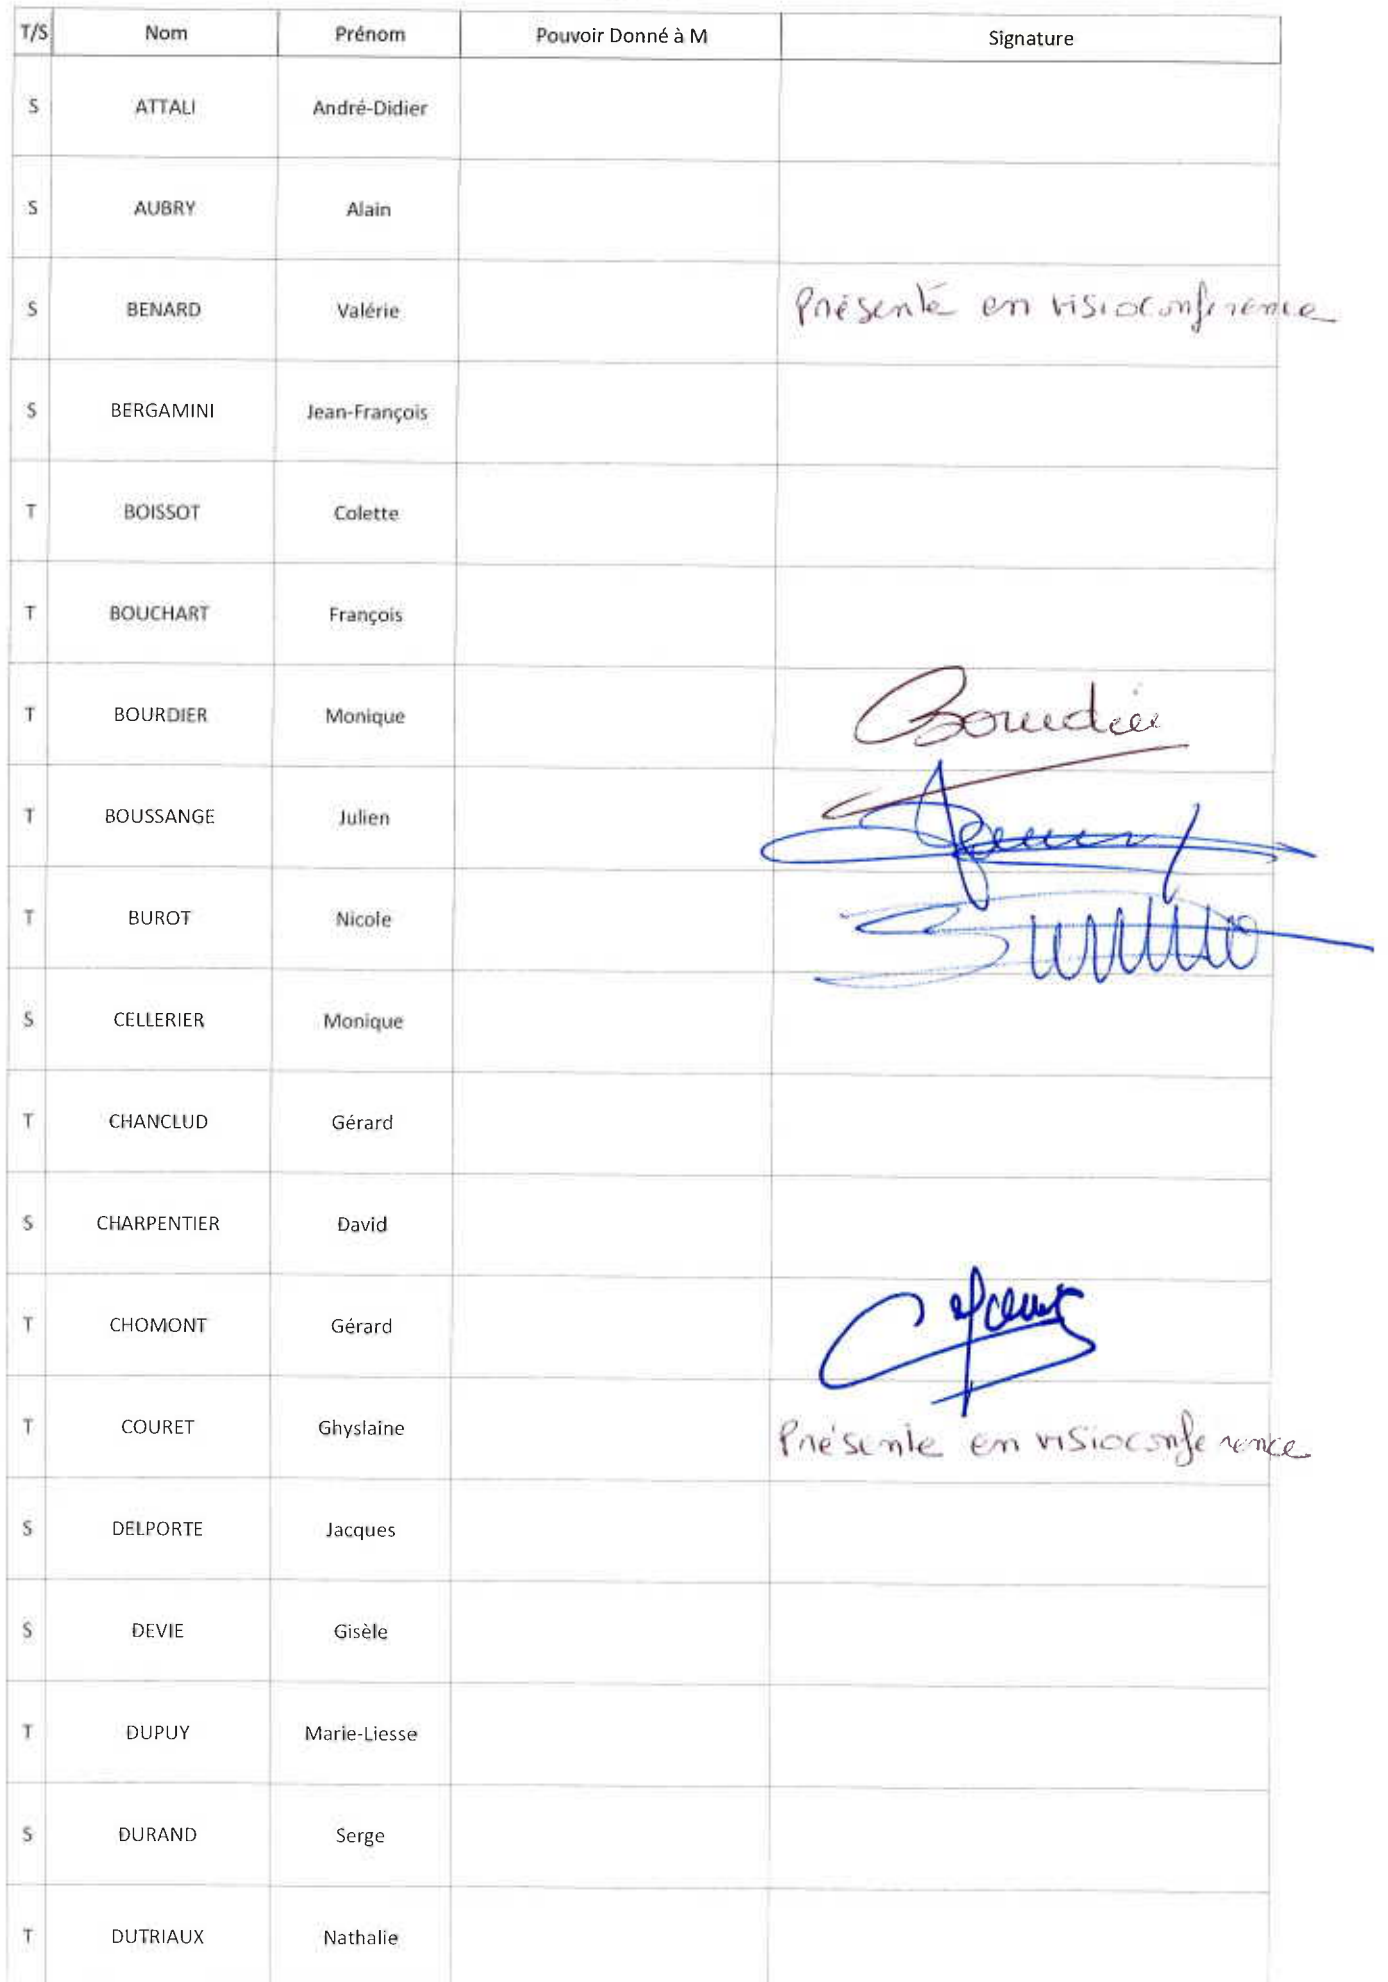 T/S Nom Prénom Pouvoir Donné à M Signature
S ATTALI André-Didier
S AUBRY Alain
S BENARD Valérie Présenté en visioconference
S BERGAMINI Jean-François
T BOISSOT Colette
T BOUCHART François
T BOURDIER Monique Bourdier
T BOUSSANGE Julien
T BUROT Nicole
S CELLERIER Monique
T CHANCLUD Gérard
S CHARPENTIER David
T CHOMONT Gérard
T COURET Ghyslaine Présente en visioconference
S DELPORTE Jacques
S DEVIE Gisèle
T DUPUY Marie-Liesse
S DURAND Serge
T DUTRIAUX Nathalie